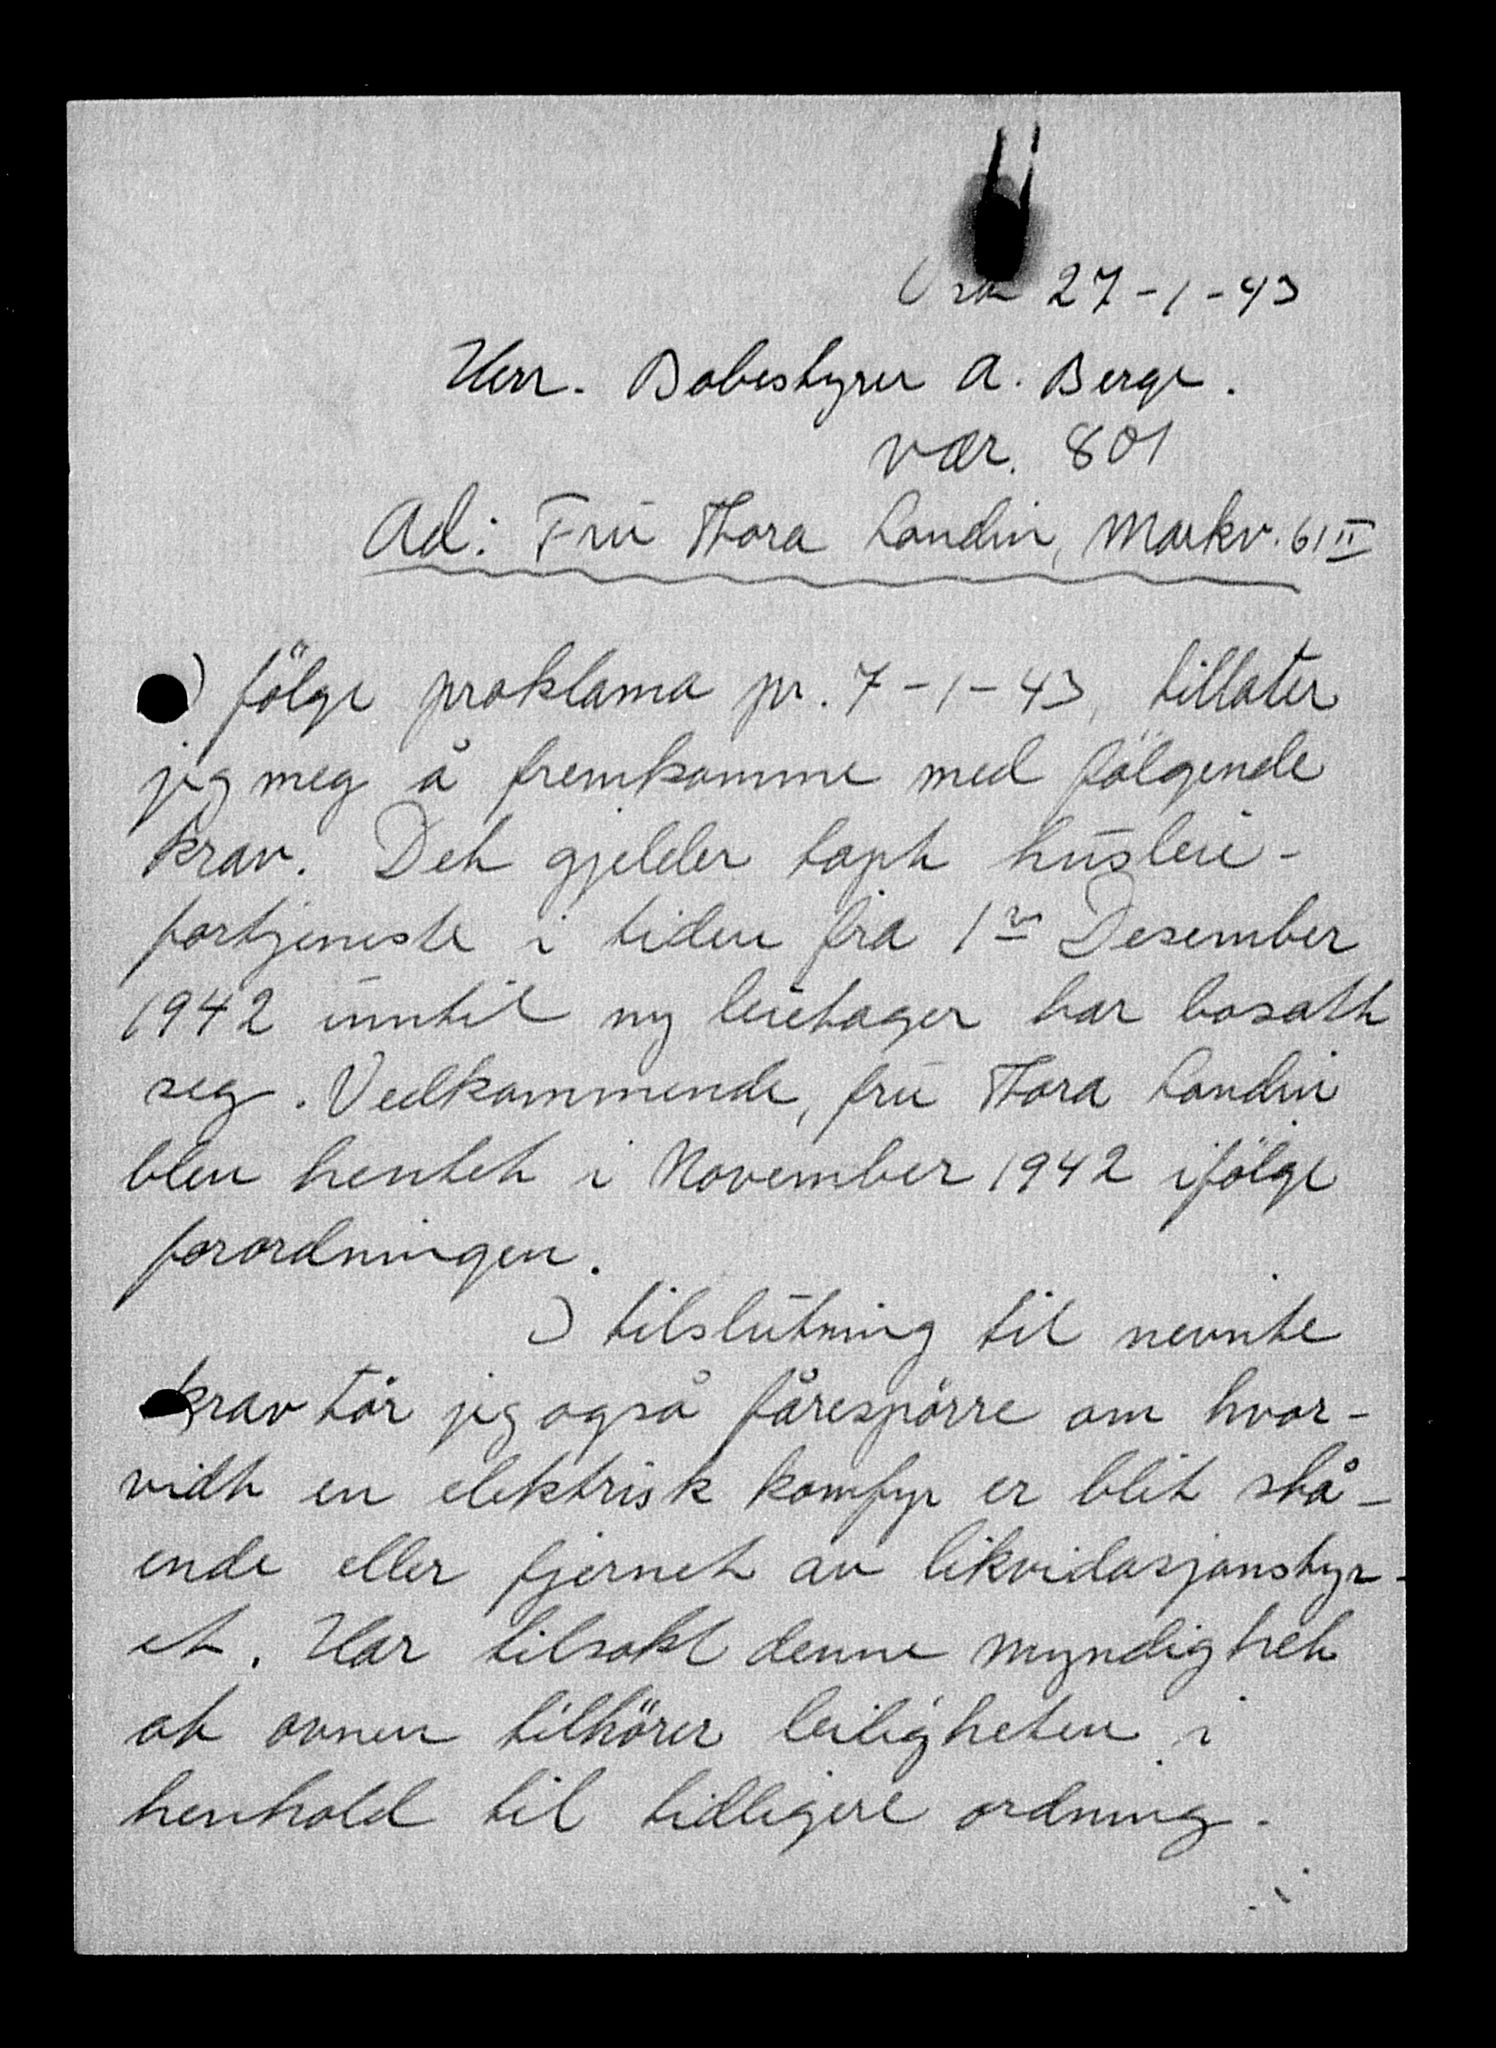 27-1-43
Herr. Bobestyrer A. Berge.
vær. 801
Ad: Fru Thora Londin, Markv. 61 II
I følge proklama pr. 7-1-43, tillater
jeg meg å fremkomme med følgende
krav. Det gjelder tapt husleie-
fortjeneste i tiden fra 1ste Desember
1942 inntil ny leietager har bosatt
seg. Vedkommende, fru Thora Londin
blev hentet i November 1942 ifølge
forordningen.
I tilslutning til nevnte
krav tör jeg også förespörre om hvor-
vidt en elektrisk komfyr er blit stå-
ende eller fjernet av likvidasjonstyr-
et. Har tilsakt denne myndighet
at ovnen tilhörer leiligheten i
henhold til tidligere ordning.